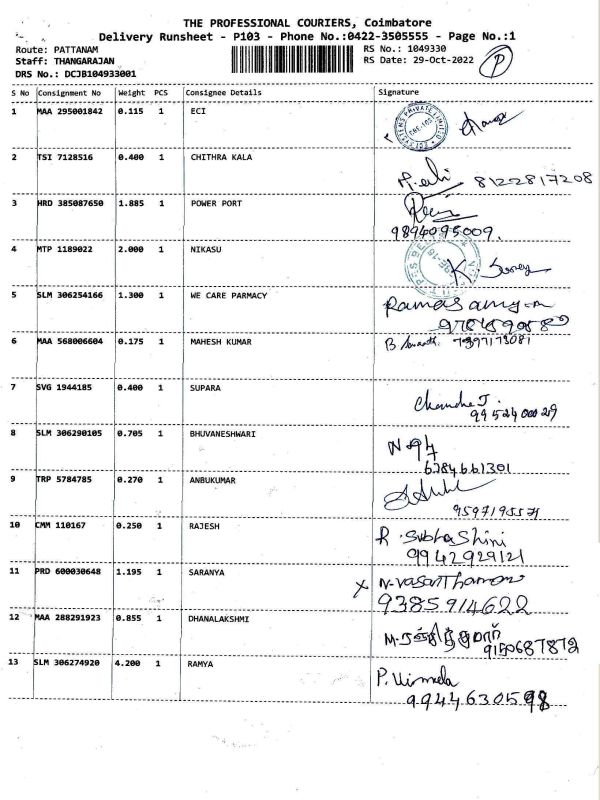 THE PROFESSIONAL COURIERS, Coimbatore
Delivery Runsheet - P103 - Phone No.:0422-3505555 - Page No.:1
Route: PATTANAM
RS No.: 1049330
Staff: THANGARAJAN
RS Date: 29-Oct-2022
P
DRS No.: DCJB104933001
S No Consignment No Weight PCS Consignee Details Signature
1 MAA 295001842 0.115 1 ECI
2 TSI 7128516 0.400 1 CHITHRA KALA
8122817208
3 HRD 385087650 1.885 1 POWER PORT
9894095009.
4 MTP 1189022 2.000 1 NIKASU
5 SLM 306254166 1.300 1 WE CARE PARMACY
Ramasamy
6 MAA 568006604 0.175 1 MAHESH KUMAR
7397173081
7 SVG 1944185 0.400 1 SUPARA
9952400029
8 SLM 306290105 0.705 1 BHUVANESHWARI
6384661301
9 TRP 5784785 0.270 1 ANBUKUMAR
10 CMM 110167 0.250 1 RAJESH
R. Subha Shini
9942929121
11 PRD 600030648 1.195 1 SARANYA
9385914622
12 MAA 288291923 0.855 1 DHANALAKSHMI
13 SLM 306274920 4.200 1 RAMYA
P. Vimala